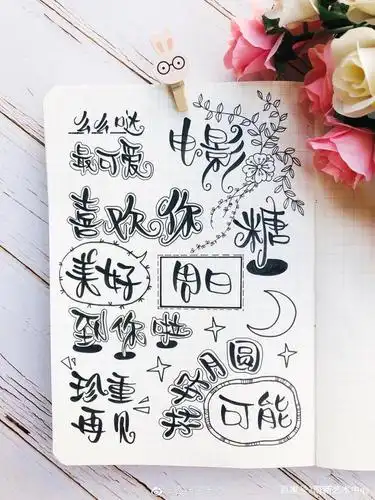 么么哒
最可爱
电影
喜欢你
糖
美好
周日
到你啦
月圆
珍重
再见
可能
艺术中心